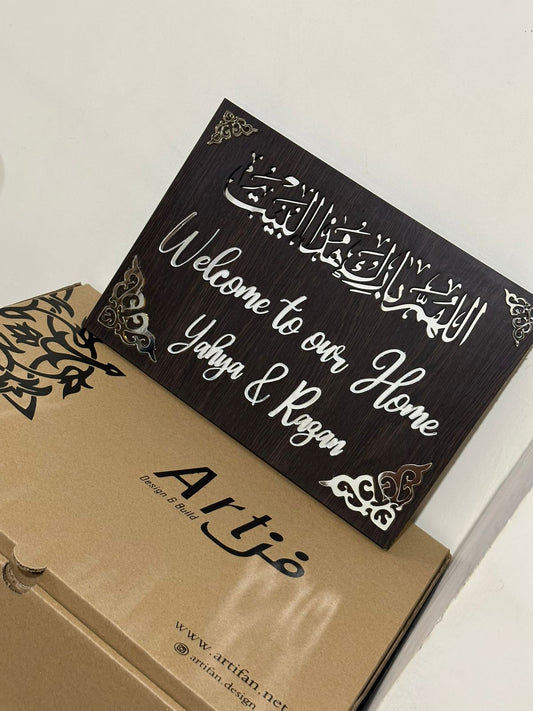 اللهم بارك هذا البيت
Welcome to our Home
Yahya & Razan
Artفن
Design & Build
www.artifan.net
artifan.design